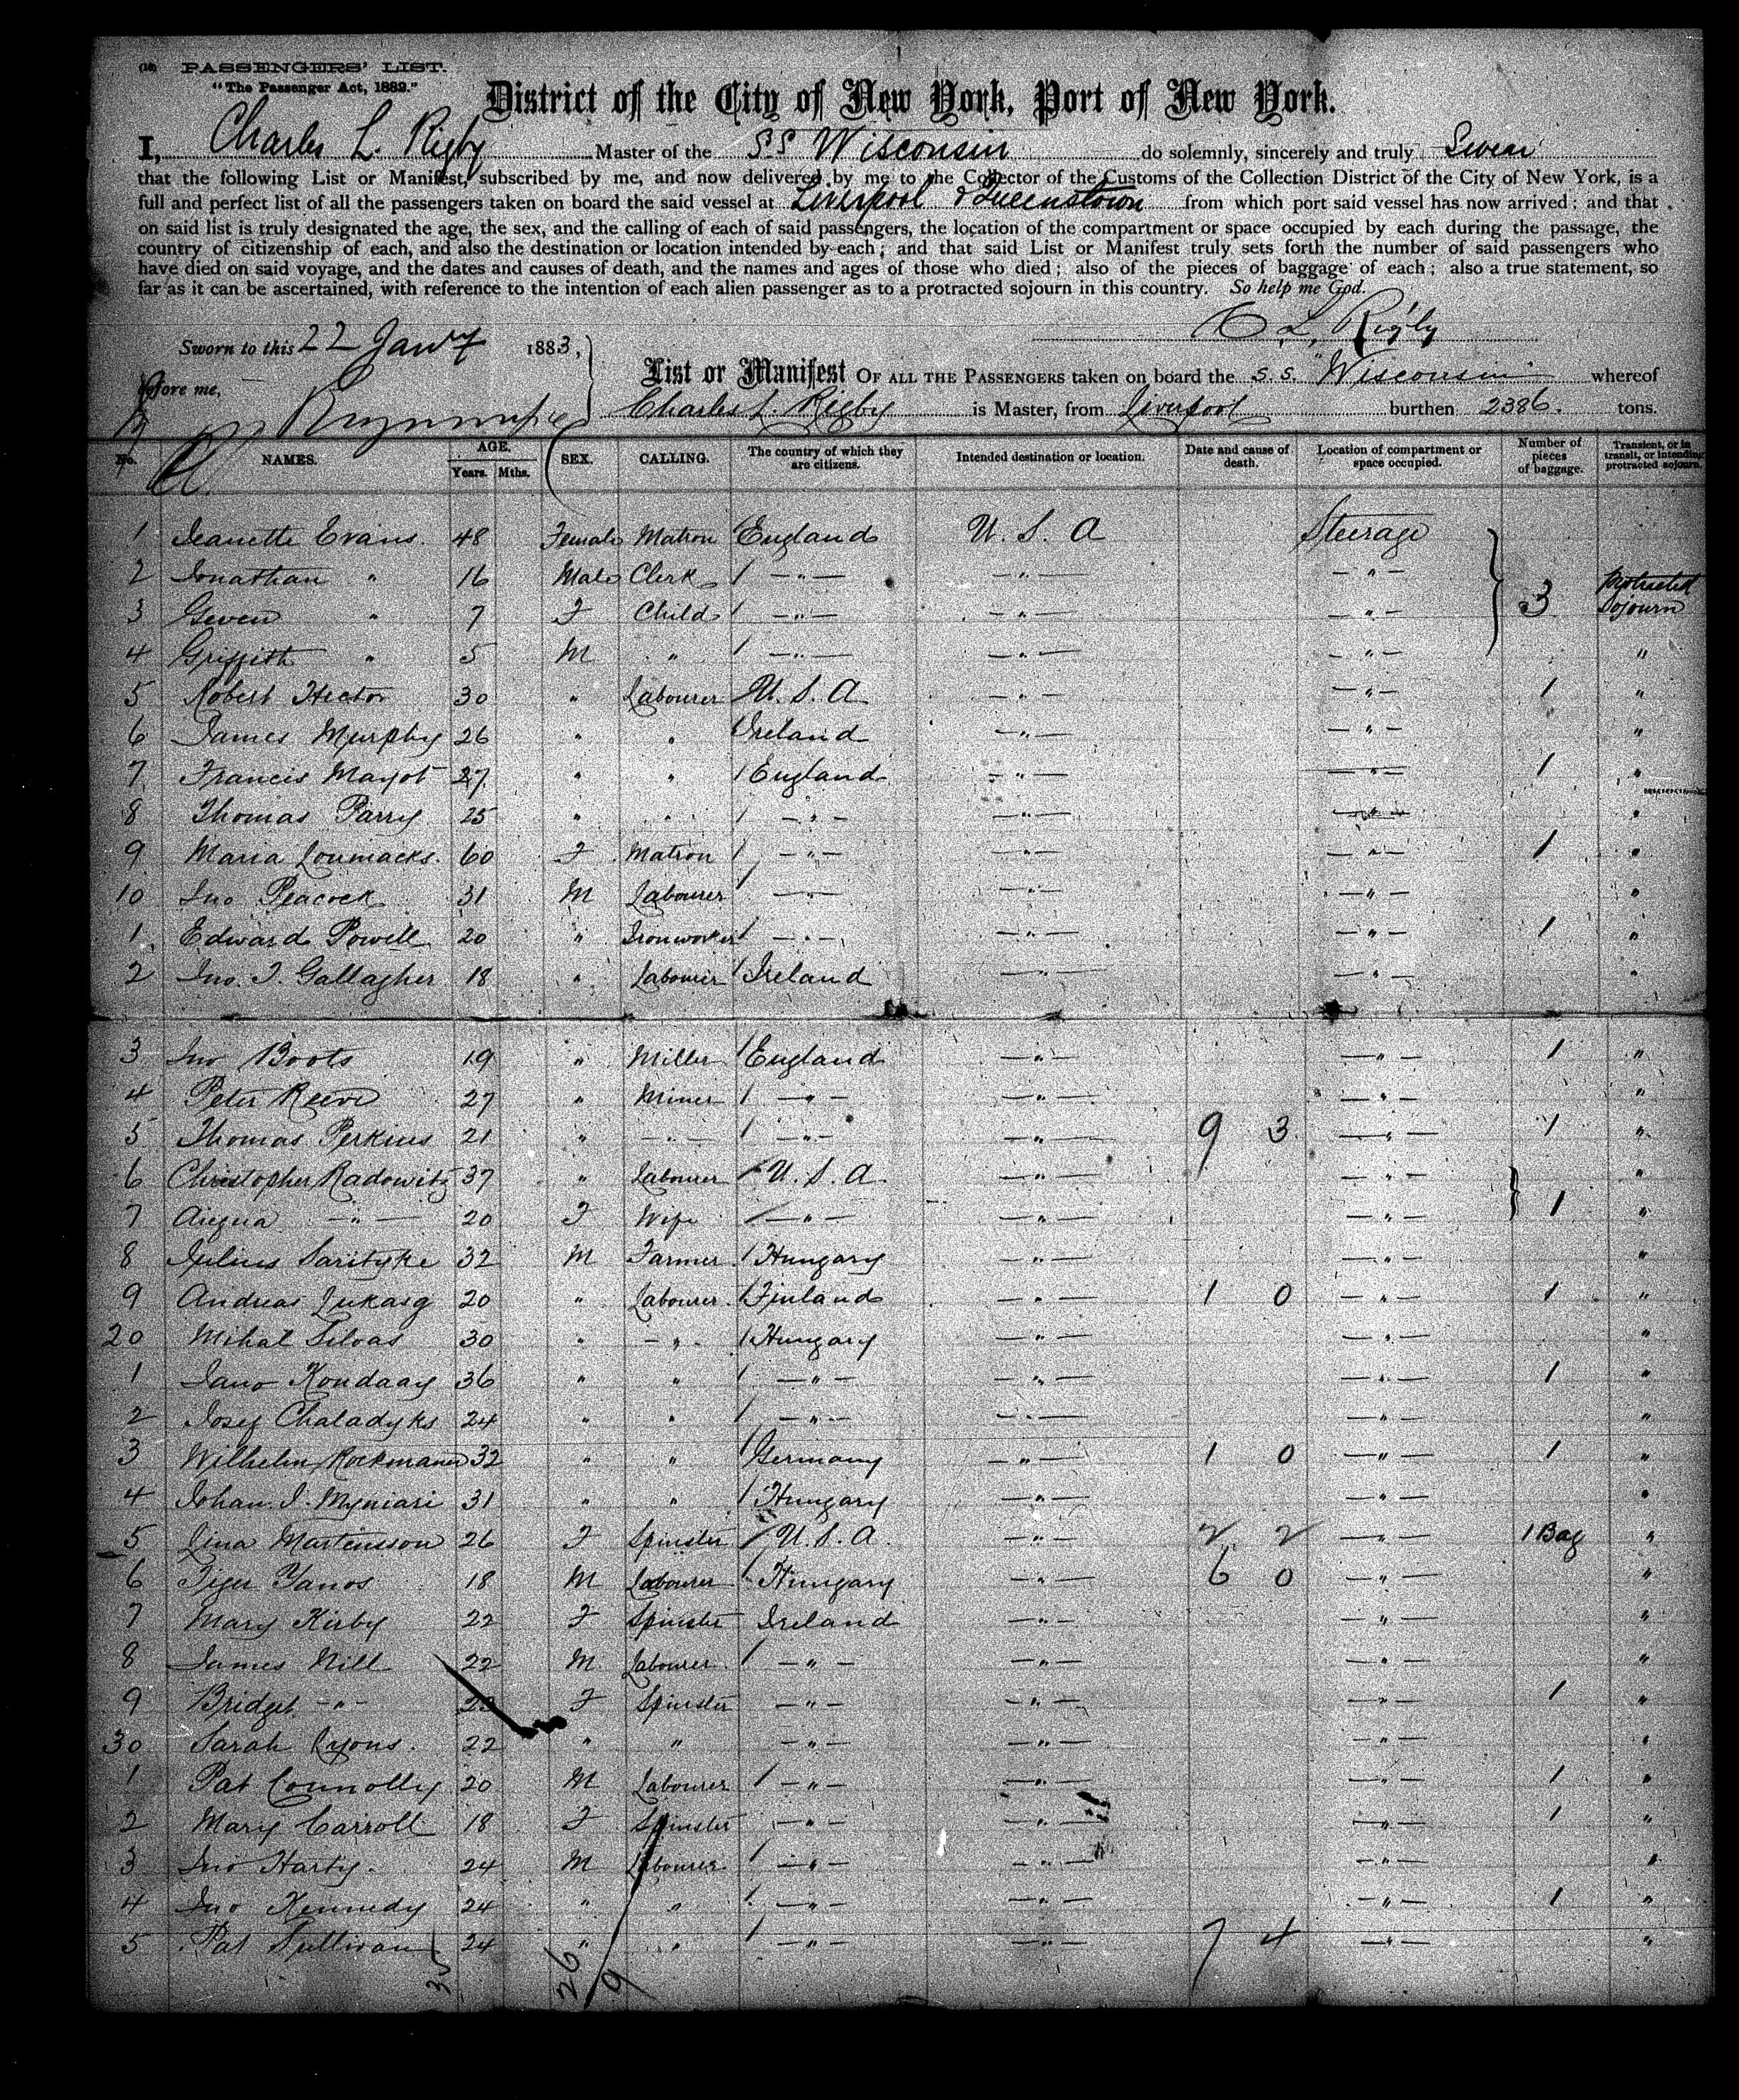 (18) PASSENGERS' LIST.
"The Passenger Act, 1882."
District of the City of New York, Port of New York.
I, Charles L. Rigby Master of the S.S Wisconsin do solemnly, sincerely and truly Swear
that the following List or Manifest, subscribed by me, and now delivered by me to the Collector of the Customs of the Collection District of the City of New York, is a
full and perfect list of all the passengers taken on board the said vessel at Liverpool & Queenstown from which port said vessel has now arrived; and that
on said list is truly designated the age, the sex, and the calling of each of said passengers, the location of the compartment or space occupied by each during the passage, the
country of citizenship of each, and also the destination or location intended by each; and that said List or Manifest truly sets forth the number of said passengers who
have died on said voyage, and the dates and causes of death, and the names and ages of those who died; also of the pieces of baggage of each; also a true statement, so
far as it can be ascertained, with reference to the intention of each alien passenger as to a protracted sojourn in this country. So help me God.
C L Rigby
Sworn to this 22 Jany 1883,
before me,
List or Manifest OF ALL THE PASSENGERS taken on board the S.S. "Wisconsin" whereof
Charles L. Rigby is Master, from Liverpool burthen 2386. tons.
No. NAMES. AGE. Years. Mths. SEX. CALLING. The country of which they are citizens. Intended destination or location. Date and cause of death. Location of compartment or space occupied. Number of pieces of baggage. Transient, or in transit, or intending protracted sojourn.
1 Jeanette Evans. 48 Female Matron England U. S. A Steerage
2 Jonathan " 16 Male Clerk / — " — — " — — " — 3 Protracted Sojourn
3 Gwen " 7 F Child / — " — — " — — " —
4 Griffith " 5 M " / — " — — " — — " — "
5 Robert Hector 30 " Labourer U. S. A — " — — " — 1 "
6 James Murphy 26 " " Ireland — " — — " — "
7 Francis Mayot 27 " " / England — " — — " — 1 "
8 Thomas Parry 25 " " / — " — — " — — " — "
9 Maria Loumacks. 60 F Matron / — " — — " — — " — 1 "
10 Jno Peacock 31 M Labourer / — " — — " — — " — "
1 Edward Powell 20 " Ironworker / — " — — " — — " — 1 "
2 Jno. J. Gallagher 18 " Labourer / Ireland — " — — " — "
3 Jno Boots 19 " Miller / England — " — — " — 1 "
4 Peter Reeve 27 " Miner / — " — — " — — " — "
5 Thomas Perkins 21 " — " — / — " — — " — 9 3 — " — 1 "
6 Christopher Radowitz 37 " Labourer / U. S. A. — " — — " — "
7 — " — 20 F Wife / — " — — " — — " — 1 "
8 Julius Sarityke 32 M Farmer / Hungary — " — — " — "
9 Andreas Lukasg 20 " Labourer / Finland — " — 1 0 — " — 1 "
20 Mihal Silvas 30 " — " — / Hungary — " — — " — "
1 Jano Kondaay 36 " " / — " — — " — — " — 1 "
2 Josef Chaladyks 24 " " / — " — — " — — " — "
3 Wilhelm Rockmann 32 " " / Germany — " — 1 0 — " — 1 "
4 Johan J. Myniari 31 " " / Hungary — " — — " — "
5 Lina Martensson 26 F Spinster / U. S. A. — " — 2 2 — " — 1 Bag "
6 Tiger Yanos 18 M Labourer / Hungary — " — 6 0 — " — "
7 Mary Kirby 22 F Spinster Ireland — " — — " — "
8 James Hill 22 M Labourer / — " — — " — — " — "
9 Bridget — " — 23 F Spinster — " — — " — — " — 1 "
30 Sarah Lyons. 22 " " — " — — " — — " — "
1 Pat Connolly 20 M Labourer / — " — — " — — " — 1 "
2 Mary Carroll 18 F Spinster — " — — " — — " — 1 "
3 Jno Harty. 24 M Labourer / — " — — " — — " — "
4 Jno Kennedy 24 " " / — " — — " — — " — 1 "
5 Pat Sullivan 24 " " / — " — — " — 7 4 — " — "
35 26/9